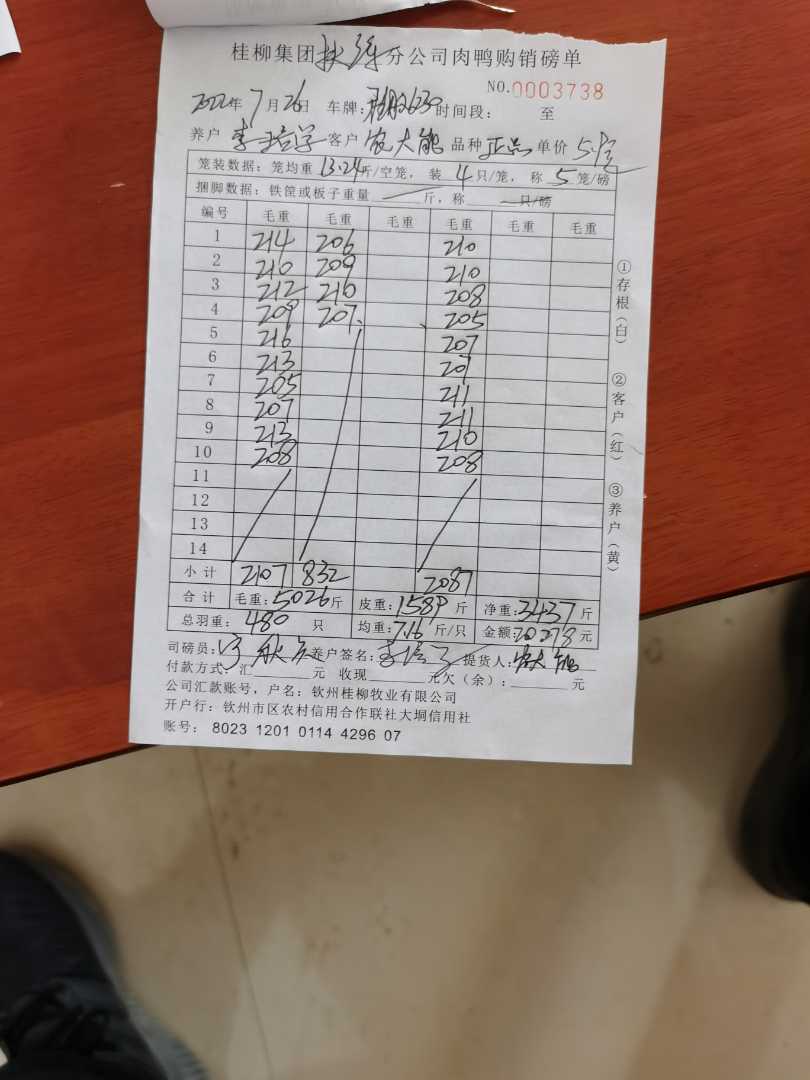 桂柳集团 分公司肉鸭购销磅单
NO.0003738
2022年7月26日 车牌: 时间段: 至
养户 李培学 客户 农大能 品种 正品 单价 5.9元
笼装数据: 笼均重 13.24斤/空笼, 装 4 只/笼, 称 5 笼/磅
捆脚数据: 铁筐或板子重量 斤, 称 只/磅
编号 毛重 毛重 毛重 毛重 毛重 毛重
1 214 206 210
2 210 209 210
3 212 210 208
4 209 207 205
5 216 207
6 213 207
7 205 211
8 207 211
9 213 210
10 208 208
11
12
13
14
小计 2107 832 2087
合计 毛重:5026斤 皮重:1589斤 净重:3437斤
总羽重: 480 只 均重:7.16斤/只 金额:20278元
司磅员: 养户签名: 提货人:农大能
付款方式:汇 元 收现 元欠(余): 元
公司汇款账号, 户名: 钦州桂柳牧业有限公司
开户行: 钦州市区农村信用合作联社大垌信用社
账号: 8023 1201 0114 4296 07
①存根(白) ②客户(红) ③养户(黄)